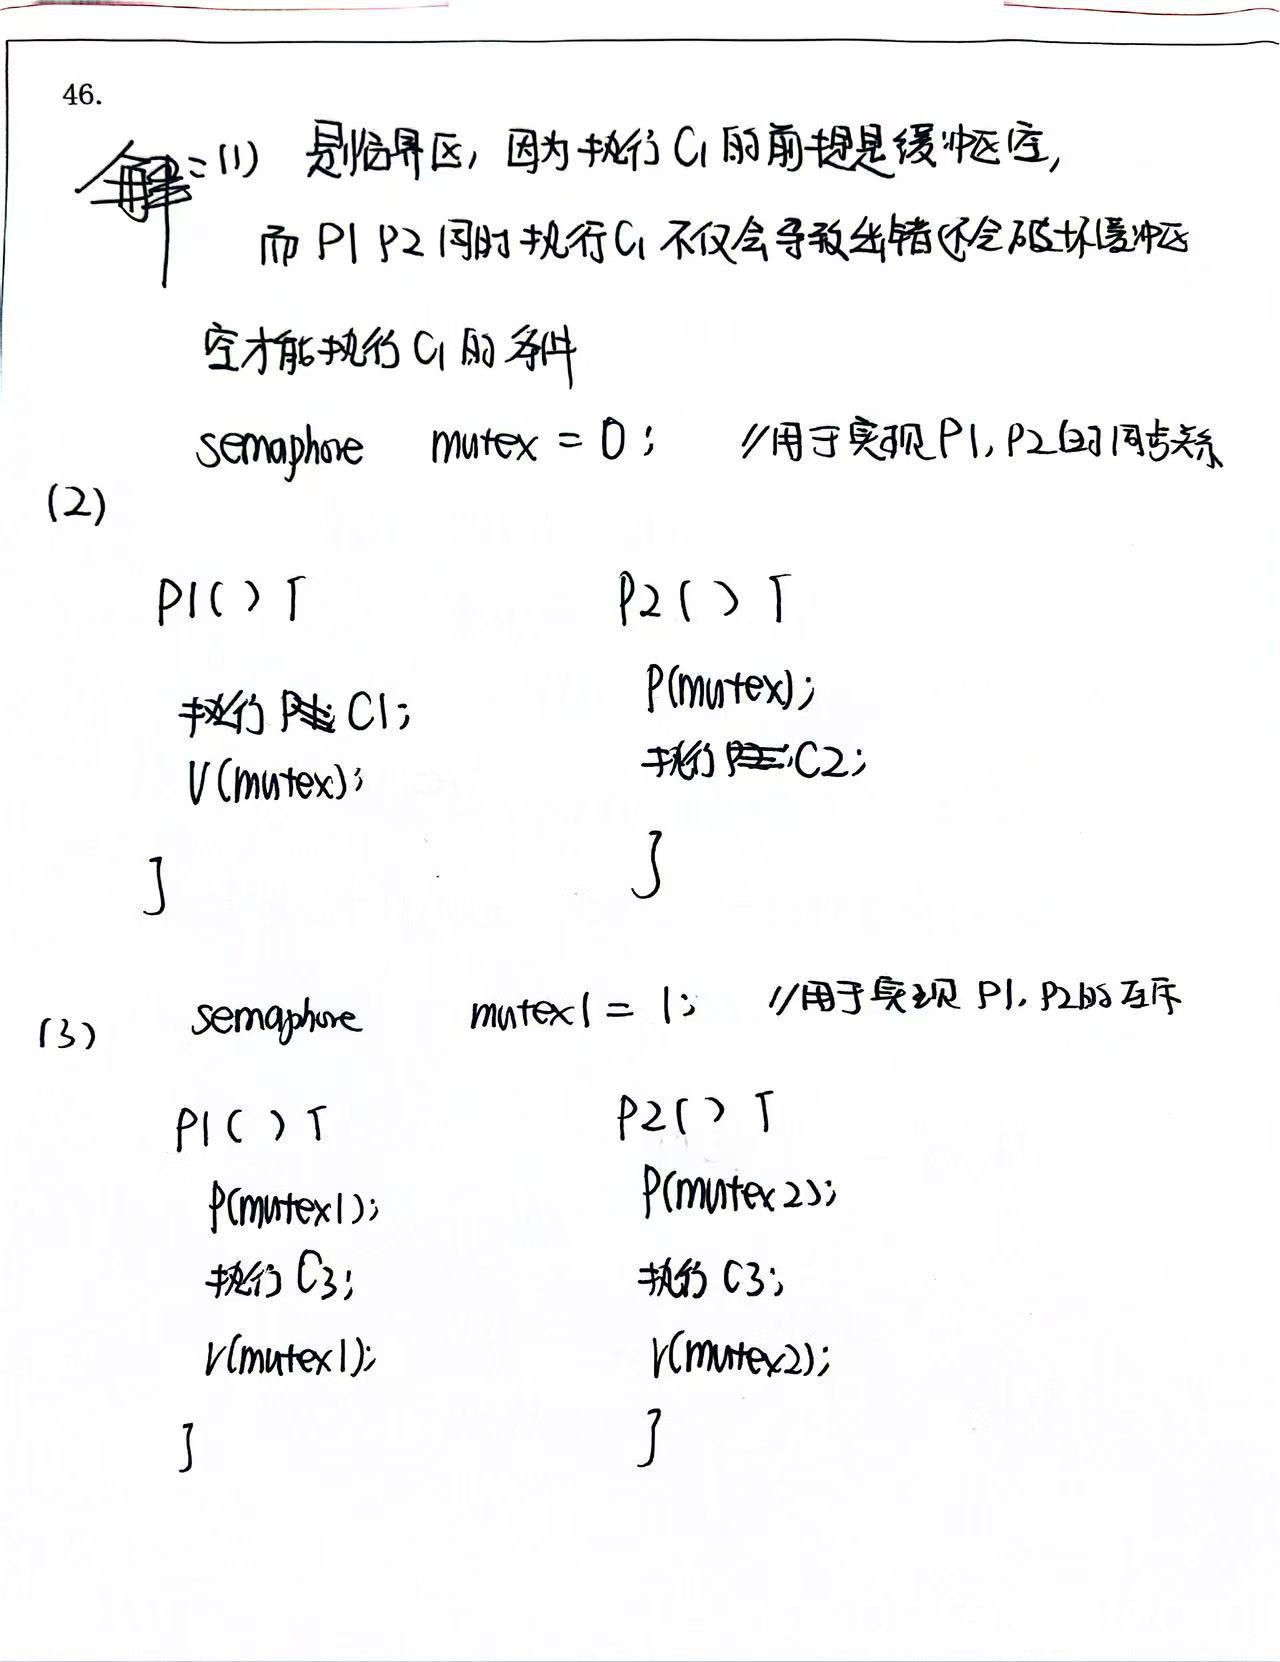 46.
解：(1) 是临界区，因为执行C1的前提是缓冲区空，
而P1 P2同时执行C1不仅会导致出错还会破坏缓冲区
空才能执行C1的条件
semaphore mutex = 0; //用于实现P1,P2的同步关系
(2)
P1(){ P2(){
P(mutex);
执行 C1; 执行 C2;
V(mutex);
} }
(3) semaphore mutex1 = 1; //用于实现P1,P2的互斥
P1(){ P2(){
P(mutex1); P(mutex2);
执行C3; 执行C3;
V(mutex1); V(mutex2);
} }